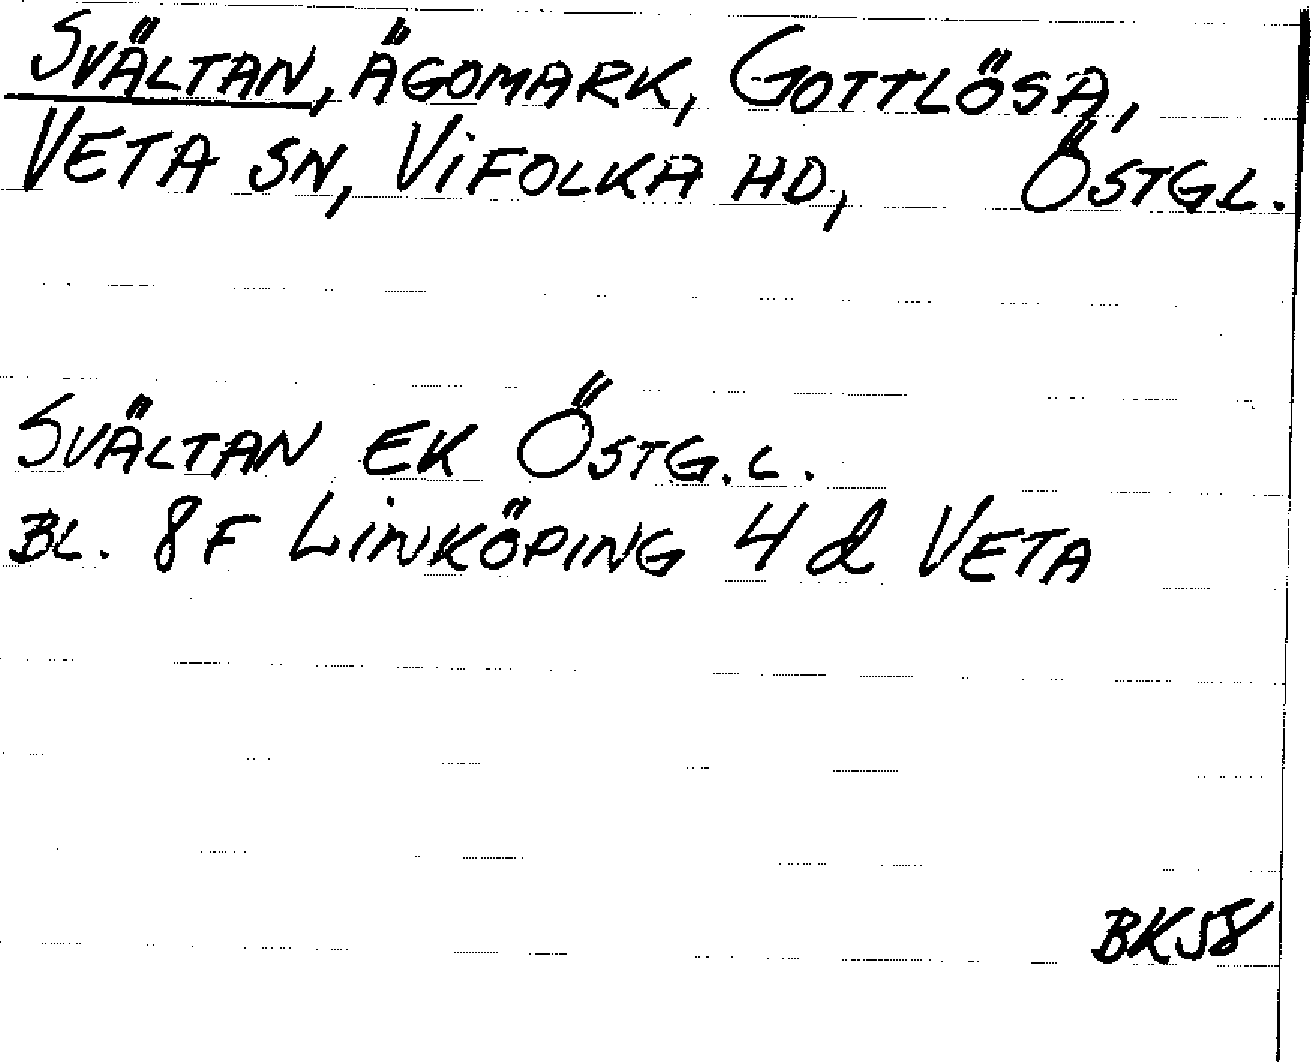 SVÄLTAN, ÄGOMARK, GOTTLÖSA,
VETA SN, VIFOLKA HD, ÖSTGL.
SVÄLTAN EK ÖSTG.L.
BL. 8F LINKÖPING 4 d VETA
BK58